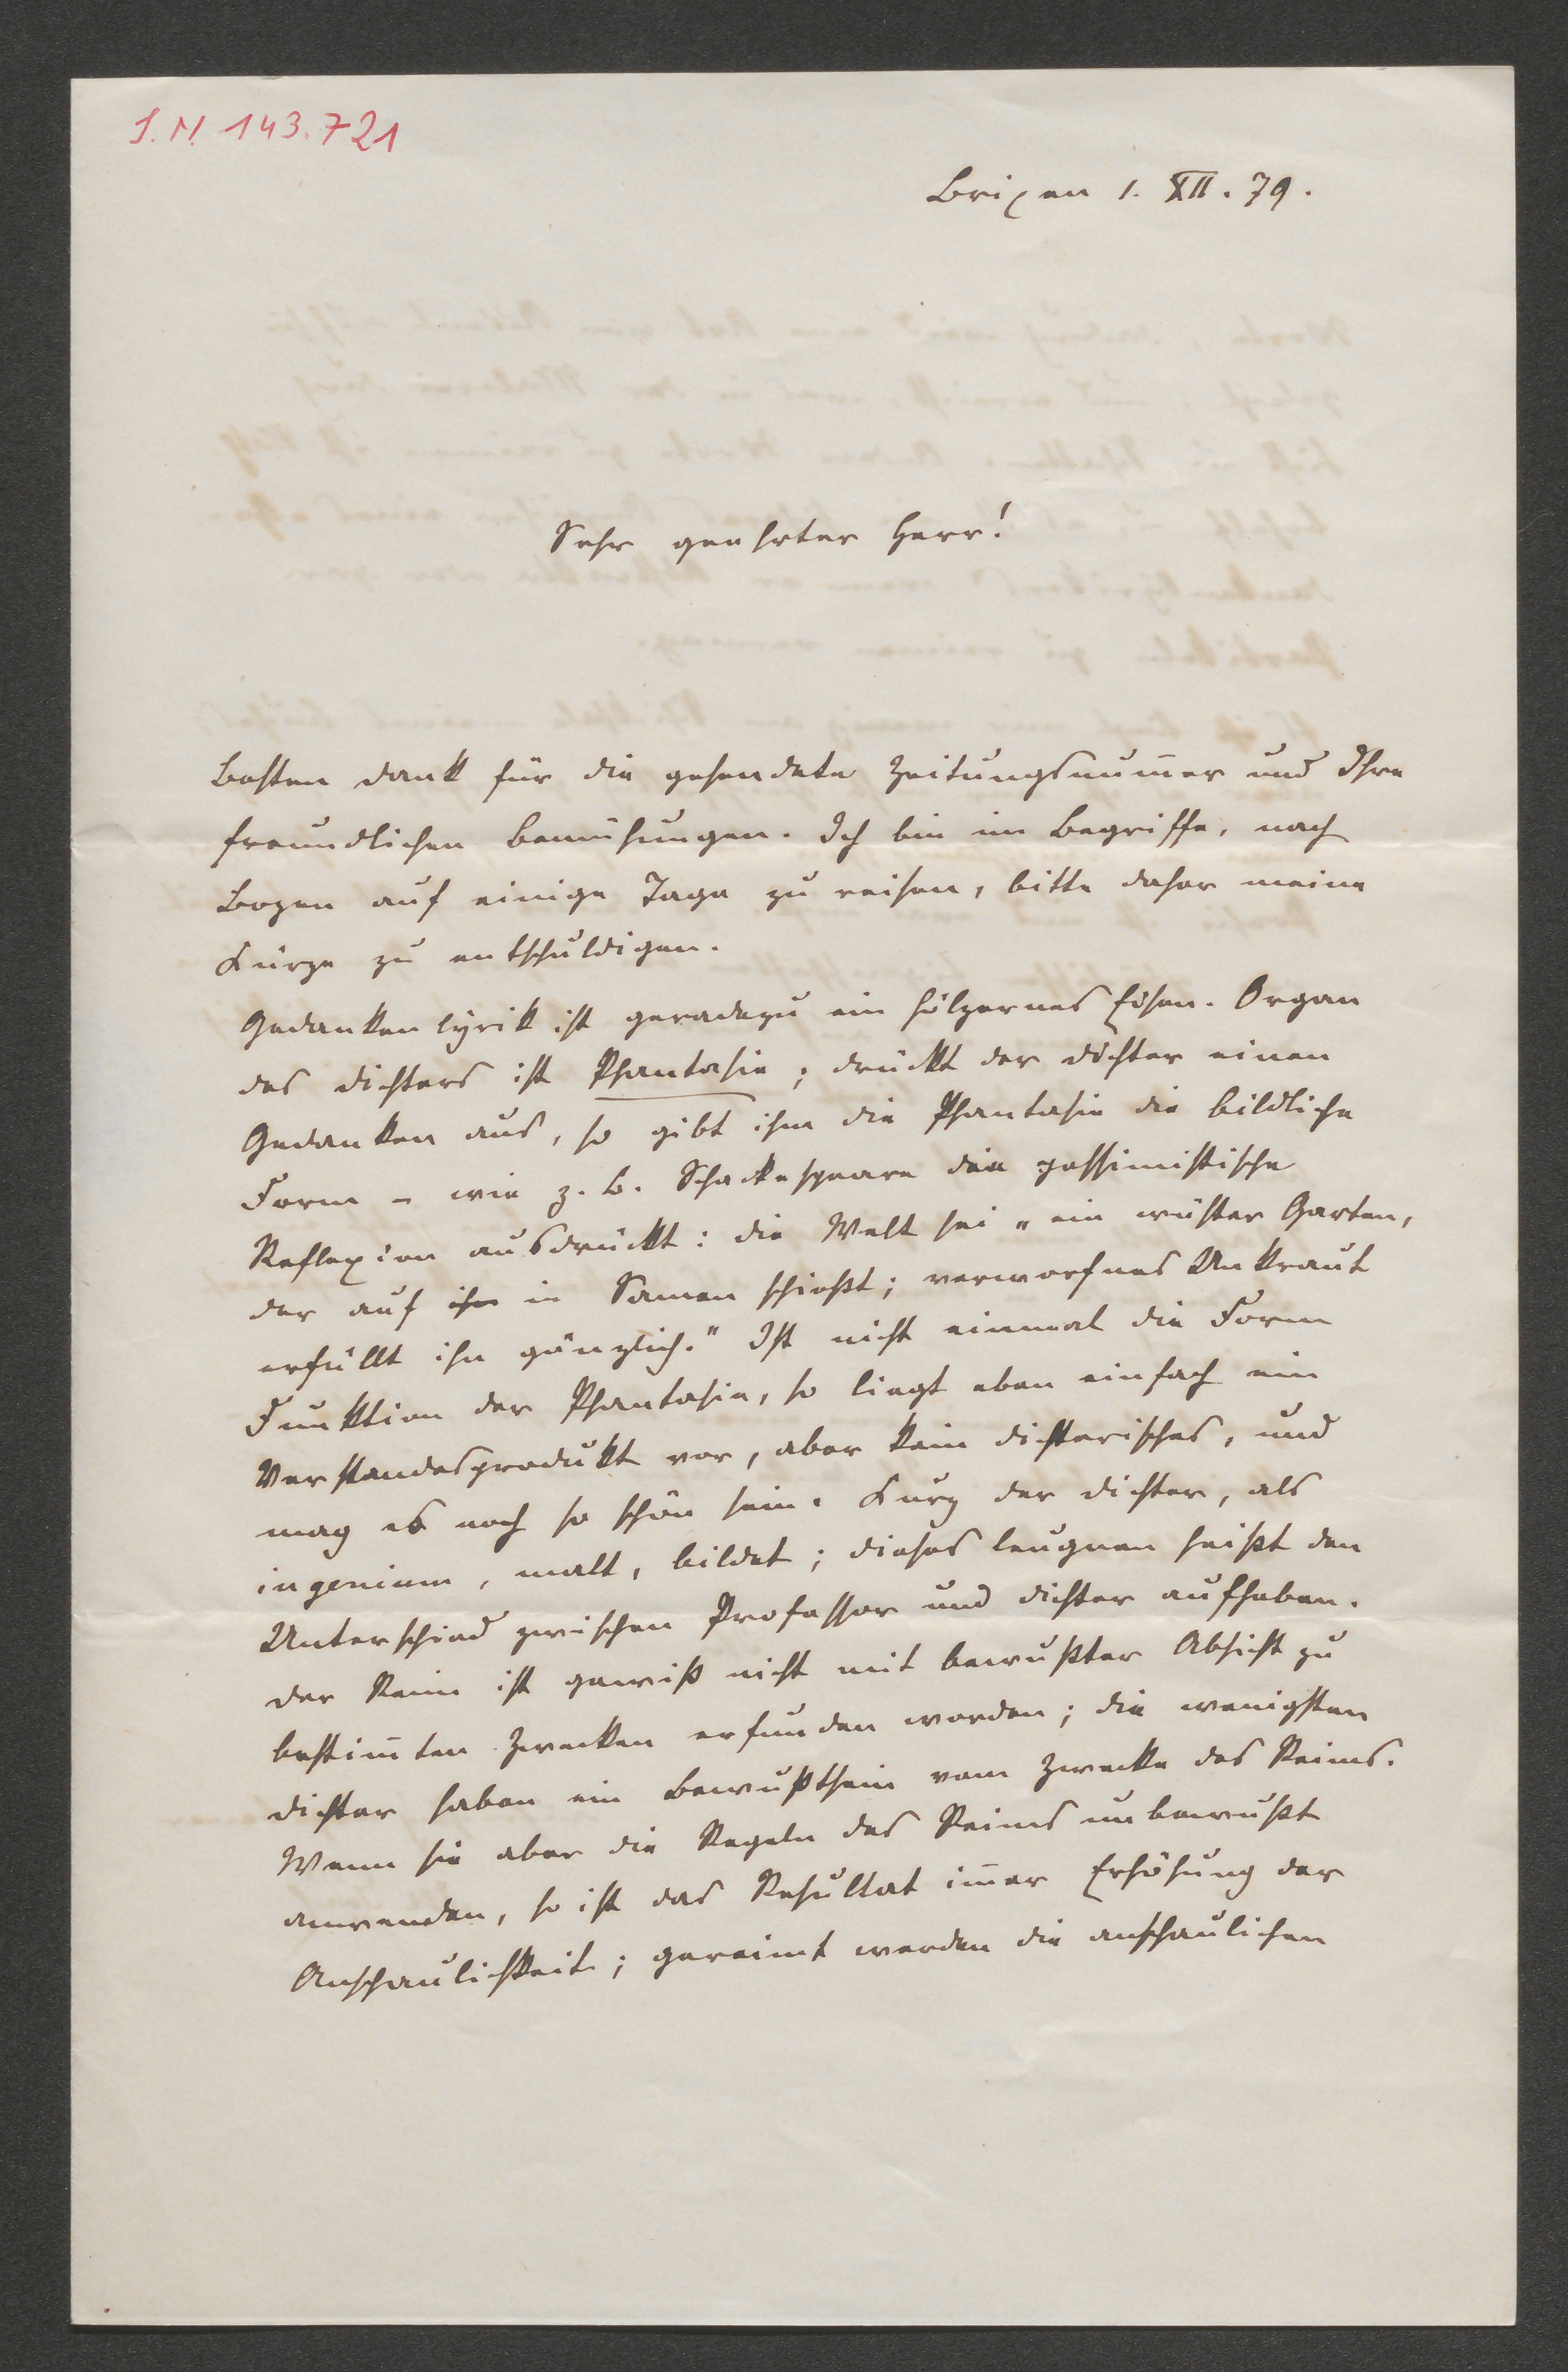 I.N. 143.721
Brixen 1. XII. 79.
Sehr geehrter Herr!
Besten Dank für die gesendete Zeitungsnum̅er und Ihre
freundlichen Bemühungen. Ich bin im Begriffe, nach
Bozen auf einige Tage zu reisen, bitte daher meine
Kürze zu entschuldigen.
Gedankenlyrik ist geradezu ein hölzernes Eisen. Organ
des Dichters ist Phantasie; drückt der Dichter einen
Gedanken aus, so gibt ihm die Phantasie die bildliche
Form – wie z. B. Schackespeare die pessimistische
Reflexion ausdrückt: die Welt sei „ein wüster Garten,
der auf ihn in Samen schießt; verworfnes Unkraut
erfüllt ihn gänzlich.“ Ist nicht einmal die Form
Funktion der Phantasie, so liegt eben einfach ein
Verstandesprodukt vor, aber kein dichterisches, und
mag es noch so schön sein. Kurz der Dichter, als
ingenium, malt, bildet; dieses leugnen heißt den
Unterschied zwischen Professor und Dichter aufheben.
Der Reim ist gewiß nicht mit bewußter Absicht zu
bestim̅ten Zwecken erfunden worden; die wenigsten
Dichter haben ein Bewußtsein vom Zwecke des Reims.
Wenn sie aber die Regeln des Reims unbewußt
anwenden, so ist das Resultat im̅er Erhöhung der
Anschaulichkeit; gereimt werden die anschaulichen